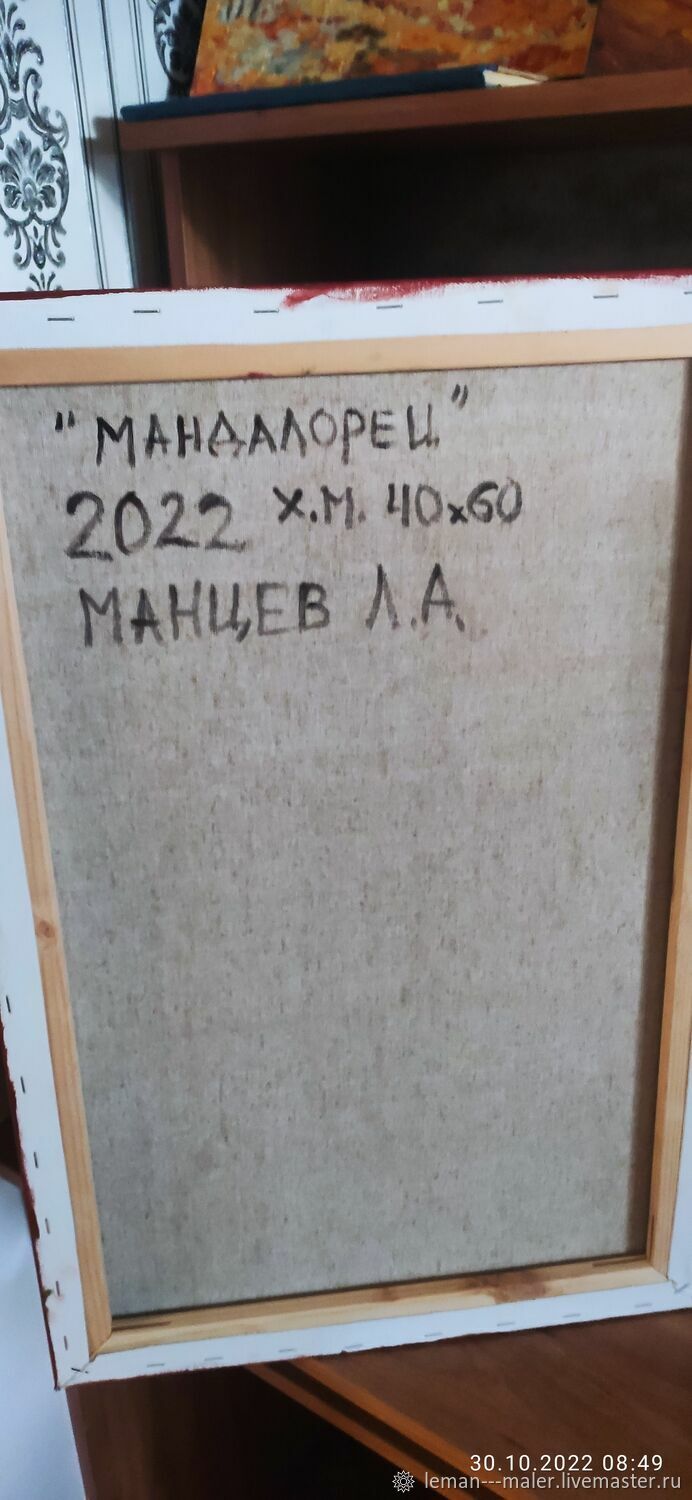 "МАНДАЛОРЕЦ"
2022 Х.М. 40х60
МАНЦЕВ Л.А.
30.10.2022 08:49
leman---maler.livemaster.ru